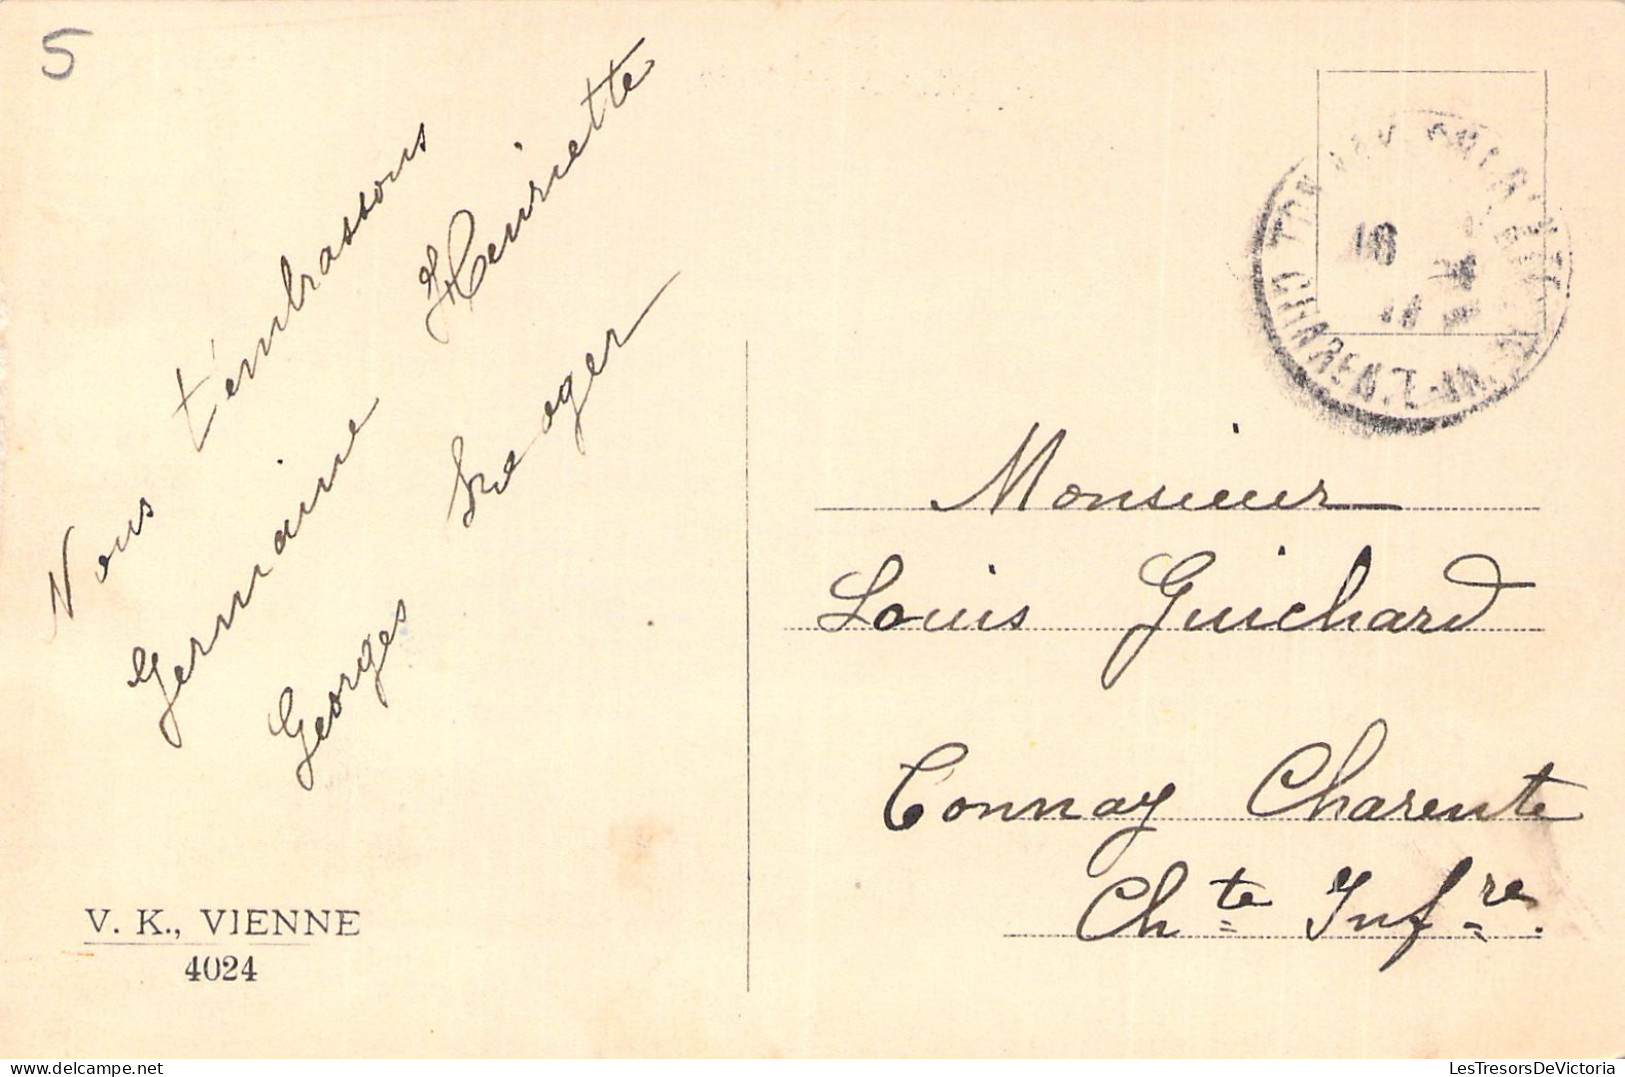 5
Nous t'embrassons
Germaine Henriette
Georges Roger
V. K., VIENNE
4024
TONNAY CHARENTE
CHARENTE INFRE
16
Monsieur
Louis Guichard
Tonnay Charente
Chte Infre.
LesTresorsDeVictoria